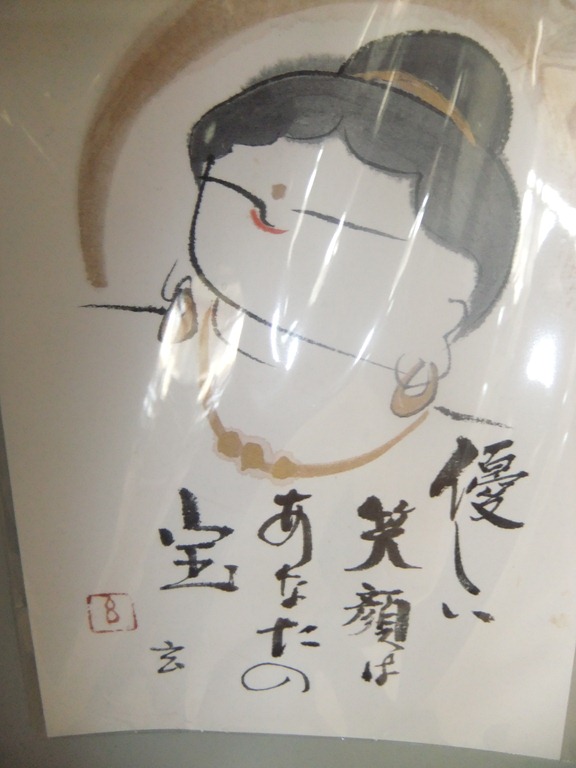 優しい
笑顔は
あなたの
宝
玄